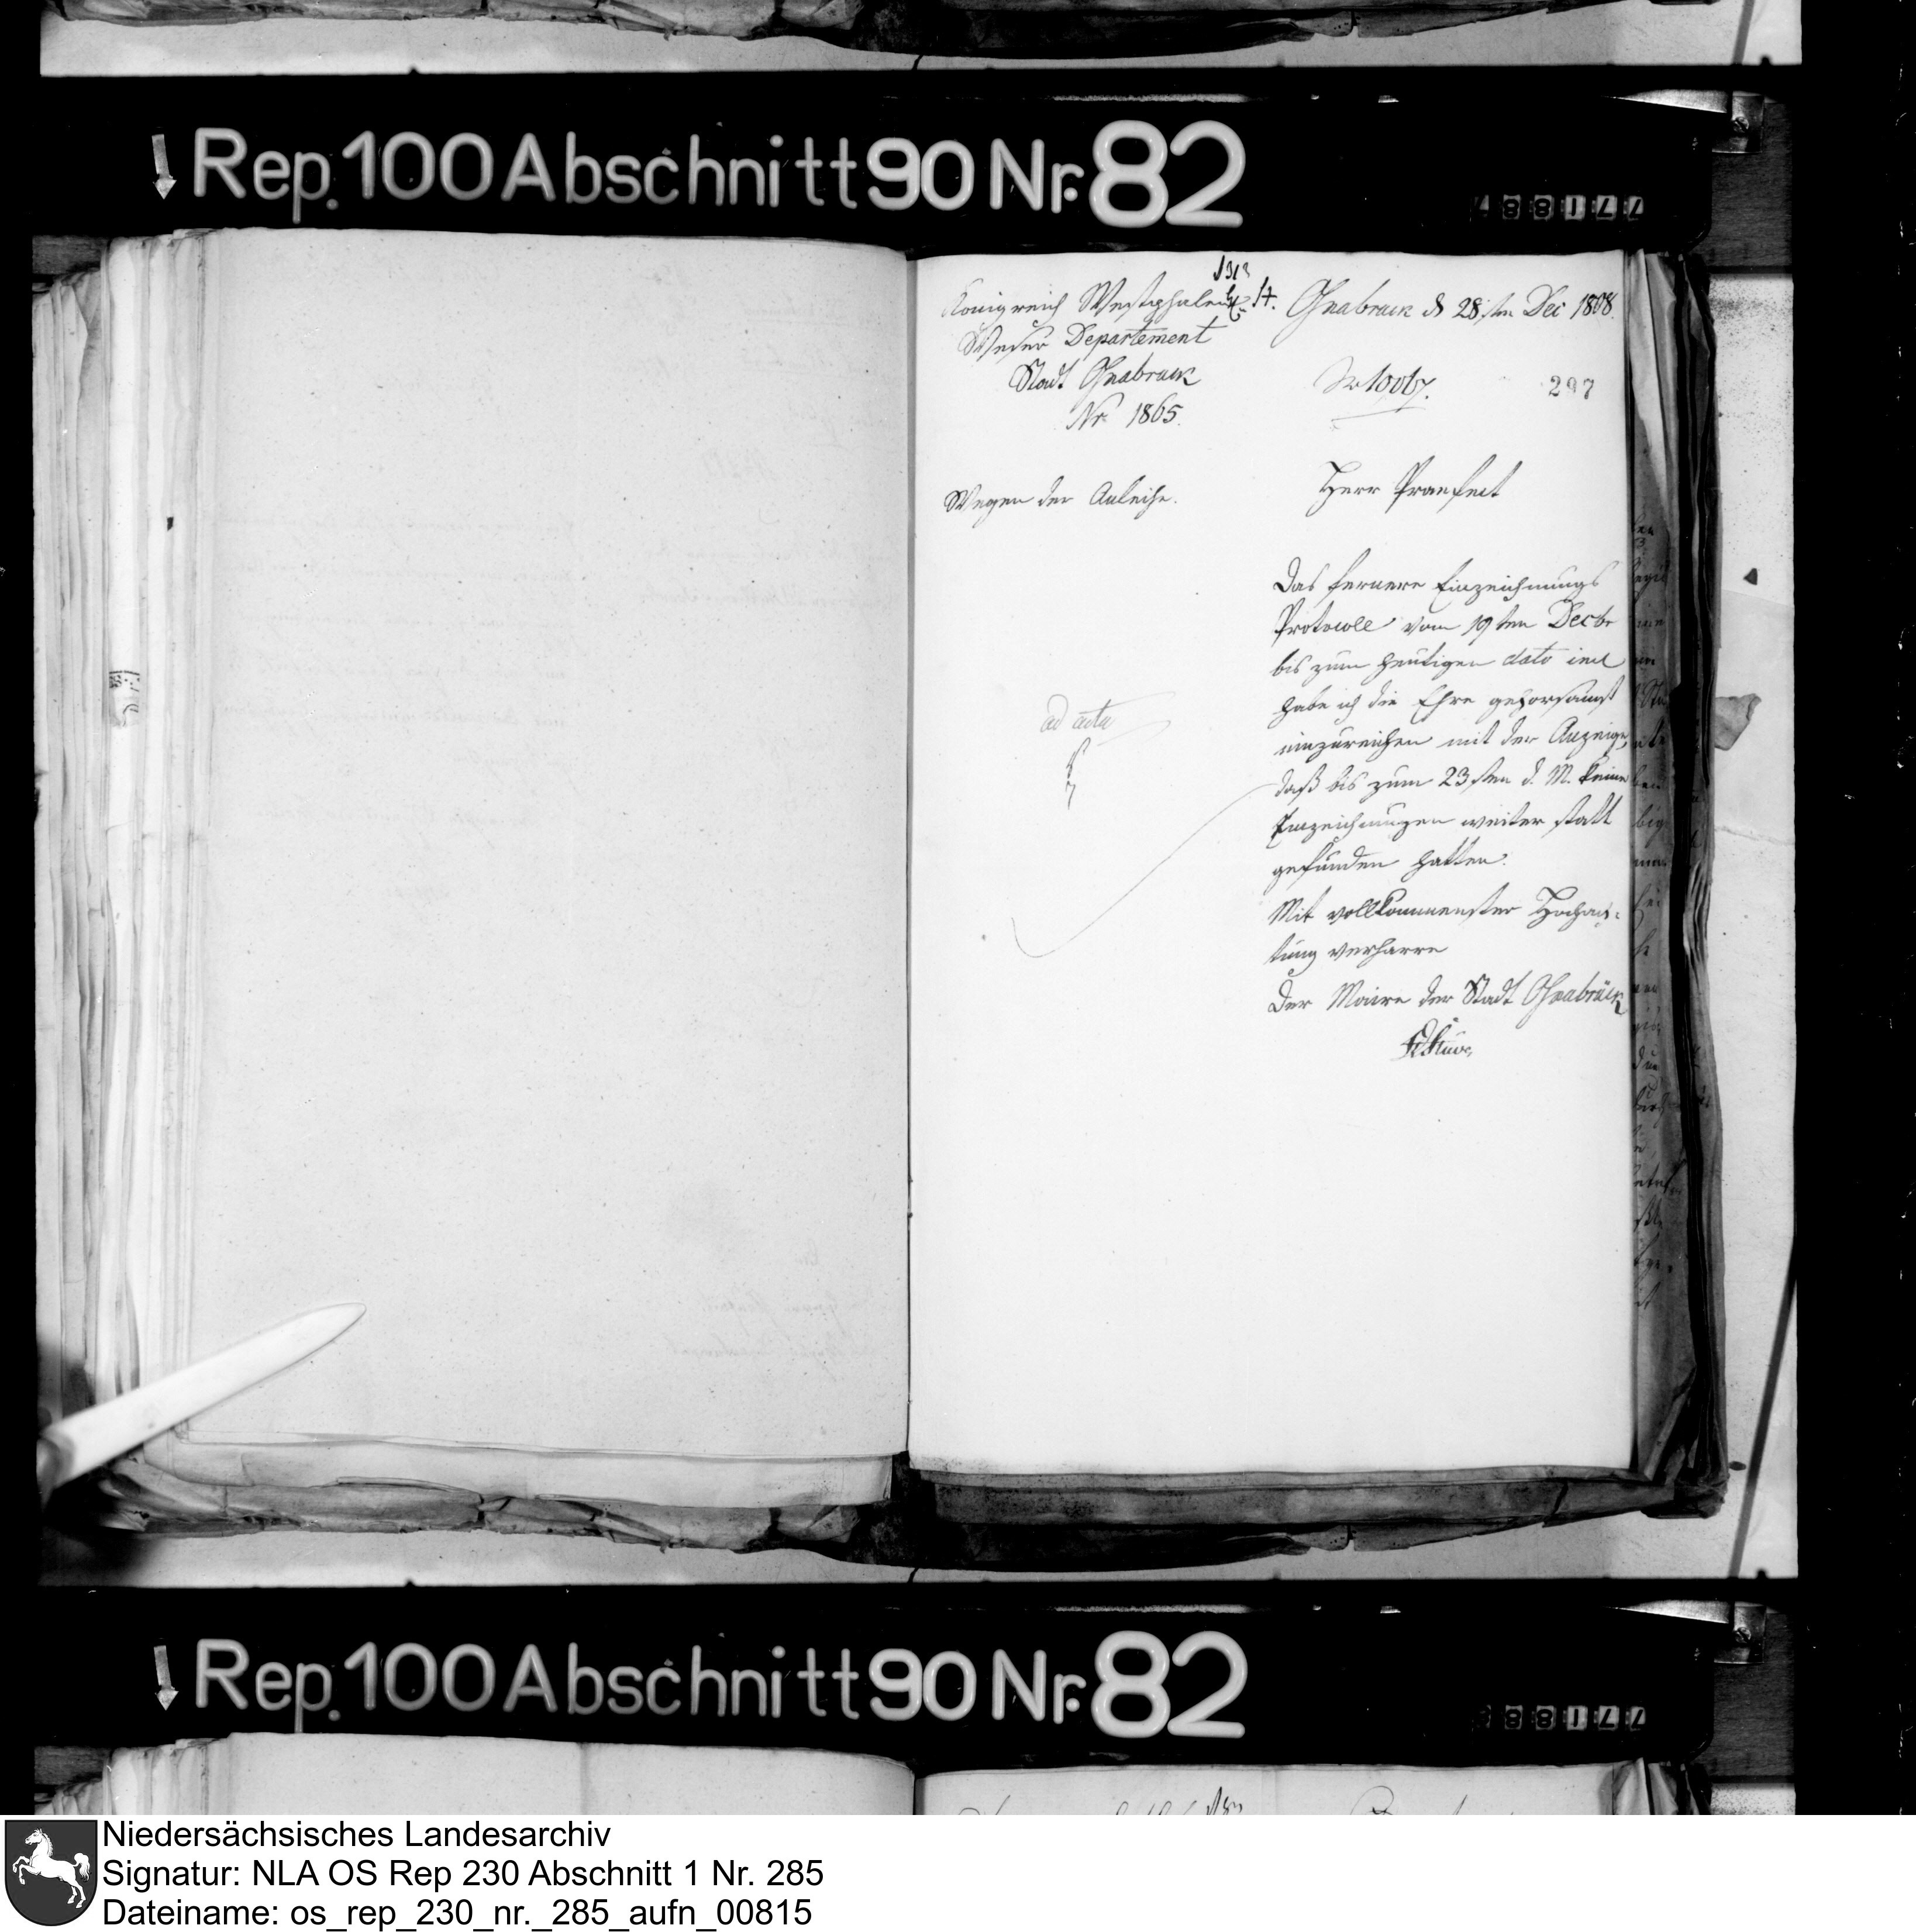 Rep. 100 Abschnitt 90 Nr. 82
Königreich Westphalen
Weser Departement
Stadt Osnabruck
Nr 1865.
Osnabruck d 28sten Dec 1808.
297
Wegen der Anleihe.
Herr Praefect
Das fernere Einzeichnungs
Protocoll vom 19ten Decbr
bis zum heutigen dato incl
habe ich die Ehre gehorsamst
einzureichen mit der Anzeige,
daß bis zum 23sten d. M. keine
Einzeichnungen weiter statt
gefunden hatten.
Mit vollkommenster Hochach-
tung verharre
Der Maire der Stadt Osnabrück
Stüve
ad acta
Rep. 100 Abschnitt 90 Nr. 82
Niedersächsisches Landesarchiv
Signatur: NLA OS Rep 230 Abschnitt 1 Nr. 285
Dateiname: os_rep_230_nr._285_aufn_00815